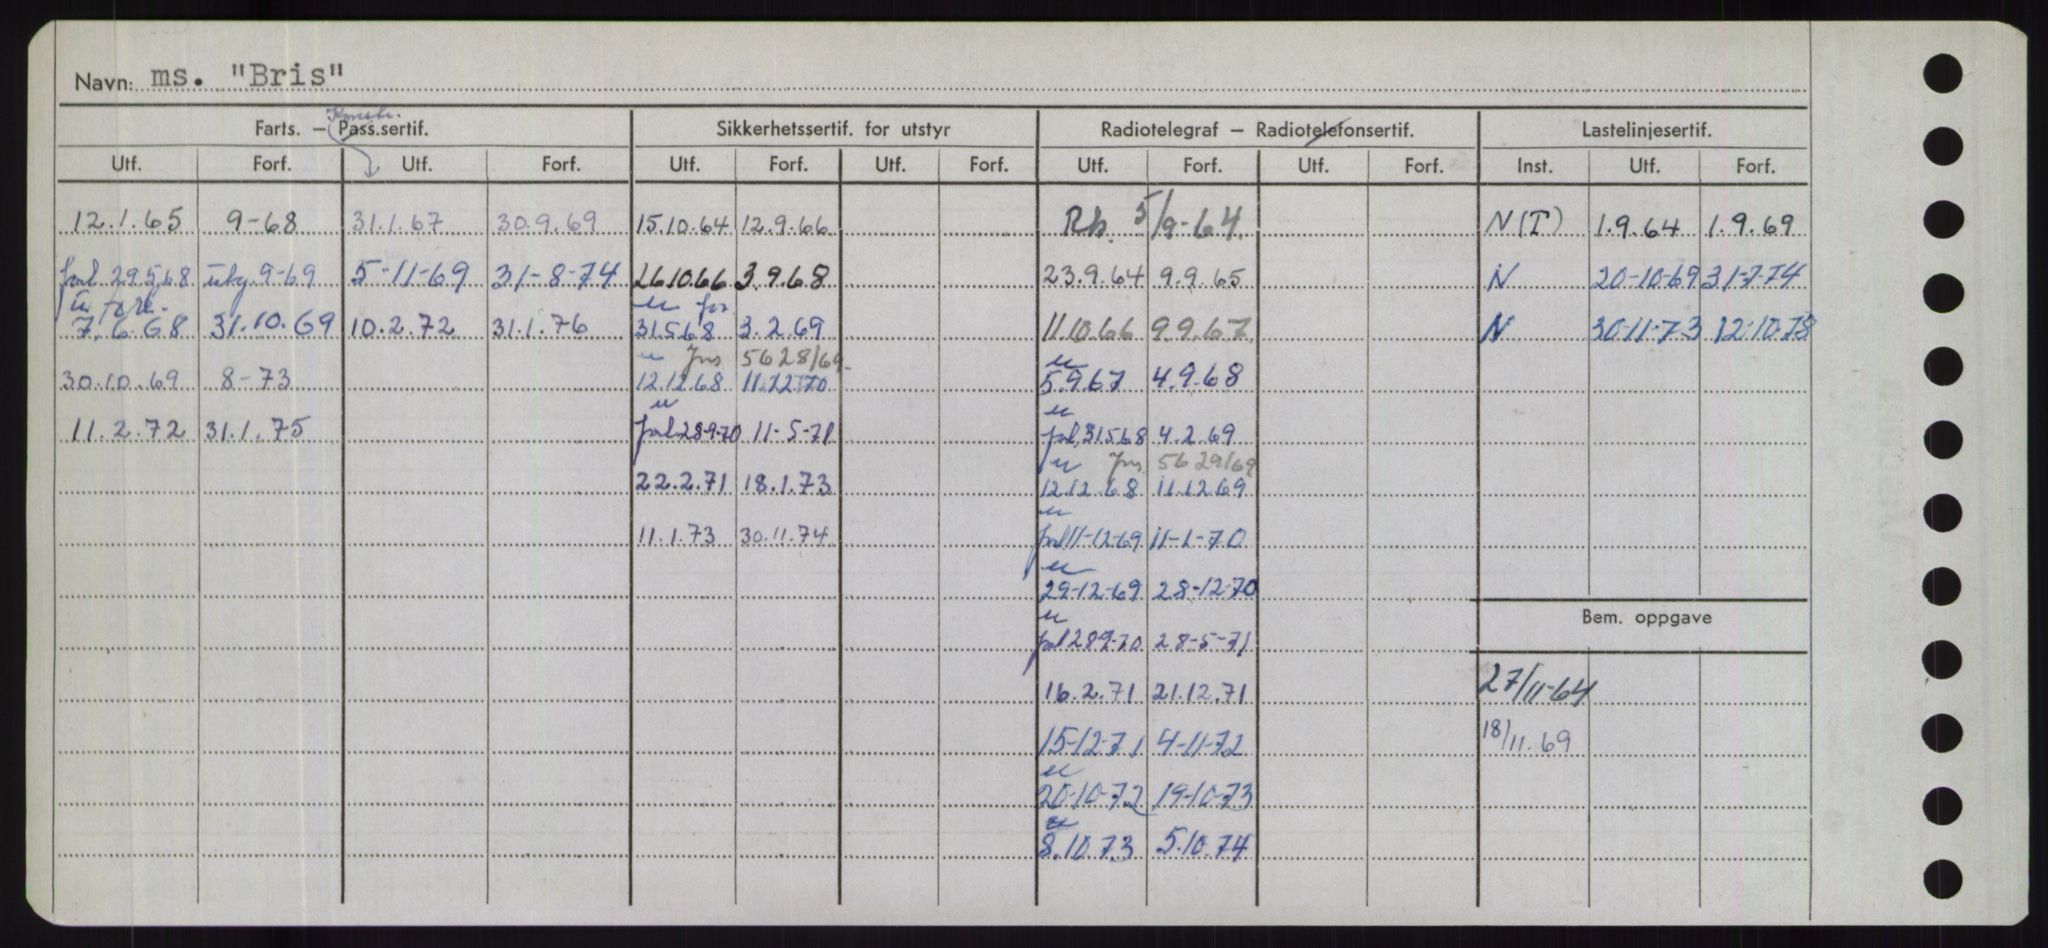 Navn: ms. "Bris"
Konstr.
Farts. — Pass.sertif. Sikkerhetssertif. for utstyr Radiotelegraf — Radiotelefonsertif. Lastelinjesertif.
Utf. Forf. Utf. Forf. Utf. Forf. Utf. Forf. Utf. Forf. Utf. Forf. Inst. Utf. Forf.
12.1.65 9-68 31.1.67 30.9.69 15.10.64 12.9.66 Rb. 5/9-64 N(T) 1.9.64 1.9.69
29.5.68 9-69 5-11-69 31-8-74 26.10.66 3.9.68 23.9.64 9.9.65 N 20-10-69 31-7-74
7.6.68 31.10.69 10.2.72 31.1.76 31.5.68 3.2.69 11.10.66 9.9.67 N 30-11-73 12-10-78
5628/69
30.10.69 8-73 12.12.68 11.12.70 5.9.67 4.9.68
11.2.72 31.1.75 28-9-70 11-5-71 31.5.68 4.2.69
5629/69
22.2.71 18.1.73 12.12.68 11.12.69
11.1.73 30.11.74 11-12-69 11-1-70
29-12-69 28-12-70
Bem. oppgave
28-9-70 28-5-71
16.2.71 21.12.71 27/11-64
15-12-71 4-11-72 18/11.69
20-10-72 19-10-73
8.10.73 5.10.74